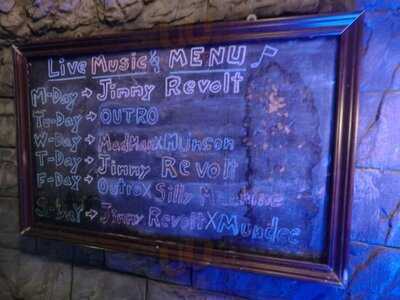 Live Music & MENU
M-Day → Jimmy Revolt
Tu-Day → OUTRO
W-Day → MadManxMunson
T-Day → Jimmy Revolt
F-Day → OutroxSilly Machine
S-Day → Jimmy RevoltXMundee